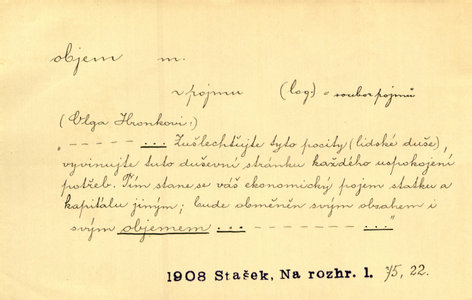 objem m.
v pojmu (log.) = soubor pojmů
(Olga Hronkovi:)
"– – – – – ... Zušlechťujte tyto pocity (lidské duše),
vyvinujte tuto duševní stránku každého uspokojení
potřeb. Tím stane se váš ekonomický pojem statku a
kapitálu jiným; bude obměněn svým obsahem i
svým objemem ... – – – – – – – – ..."
1908 Stašek, Na rozhr. 1. 75, 22.